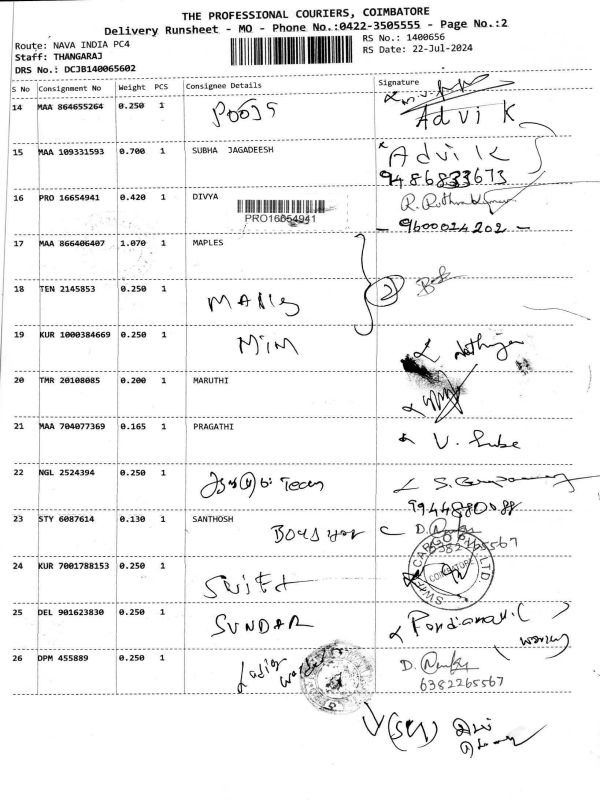 THE PROFESSIONAL COURIERS, COIMBATORE
Delivery Runsheet - MO - Phone No.:0422-3505555 - Page No.:2
Route: NAVA INDIA PC4
Staff: THANGARAJ
DRS No.: DCJB140065602
RS No.: 1400656
RS Date: 22-Jul-2024
S No Consignment No Weight PCS Consignee Details Signature
14 MAA 864655264 0.250 1
Advik
15 MAA 109331593 0.700 1 SUBHA JAGADEESH Advik
9486833673
16 PRO 16654941 0.420 1 DIVYA
PRO16654941
- 9600024202 -
17 MAA 866406407 1.070 1 MAPLES
18 TEN 2145853 0.250 1 2
19 KUR 1000384669 0.250 1 MIM
20 TMR 20108085 0.200 1 MARUTHI
21 MAA 704077369 0.165 1 PRAGATHI V.
22 NGL 2524394 0.250 1 Team S.
23 STY 6087614 0.130 1 SANTHOSH D.
6382265567
24 KUR 7001788153 0.250 1
CARGO PVT. LTD
COIMBATORE
25 DEL 901623830 0.250 1 SUNDAR
26 DPM 455889 0.250 1 Ladies D.
6382265567